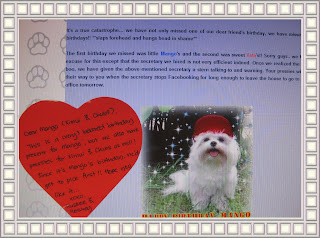 It's a true catastrophe... we have not only missed one of our dear friend's birthday, we have missed
birthdays!! **slaps forehead and hangs head in shame**
The first birthday we missed was little Mango's and the second was sweet
excuse for this except that the secretary we hired is not very efficient indeed. Once we realized the
boo, we have given the above mentioned secretary a stern talking to and warning. Your presents will
their way to you when the secretary stops Facebooking for long enough to leave the house to go to
office tomorrow.
Dear Mango,
This is a very belated birthday
present for Mango, but we also have
pressies for
Since it's Mango's birthday,
get to pick first!! Hope you
like it.
HAPPY BIRTHDAY MANGO